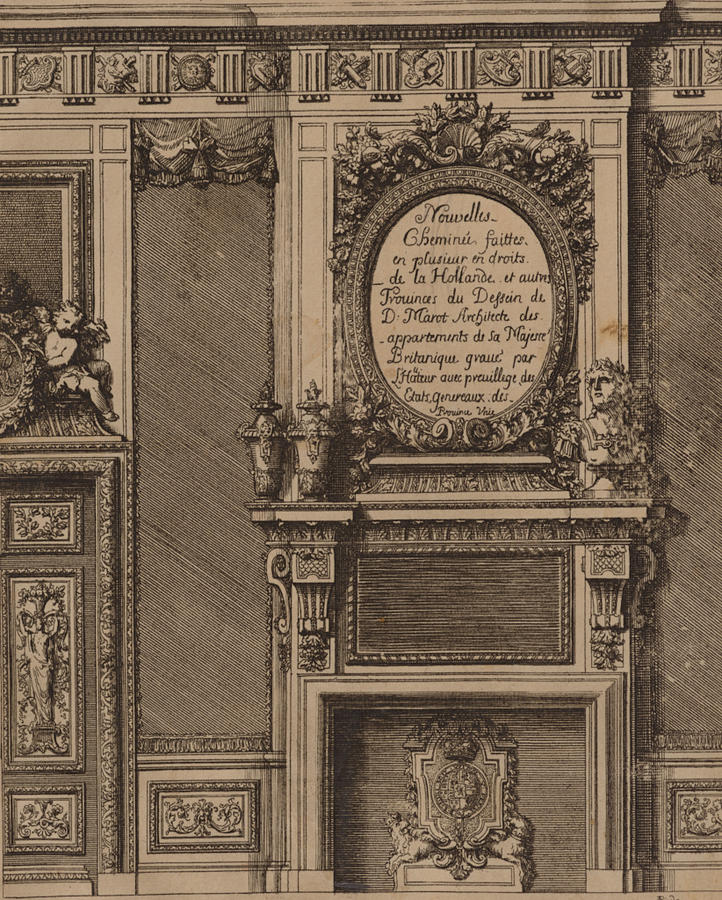 Nouvelles
Cheminée faittes
en plusieur en droits
de la Hollande et autres
Prouinces du Dessein de
D. Marot Architecte des
appartements de Sa Majesté
Britanique gravé par
l'Hauteur avec preuillege des
États genereaux des
Prouince Vnie